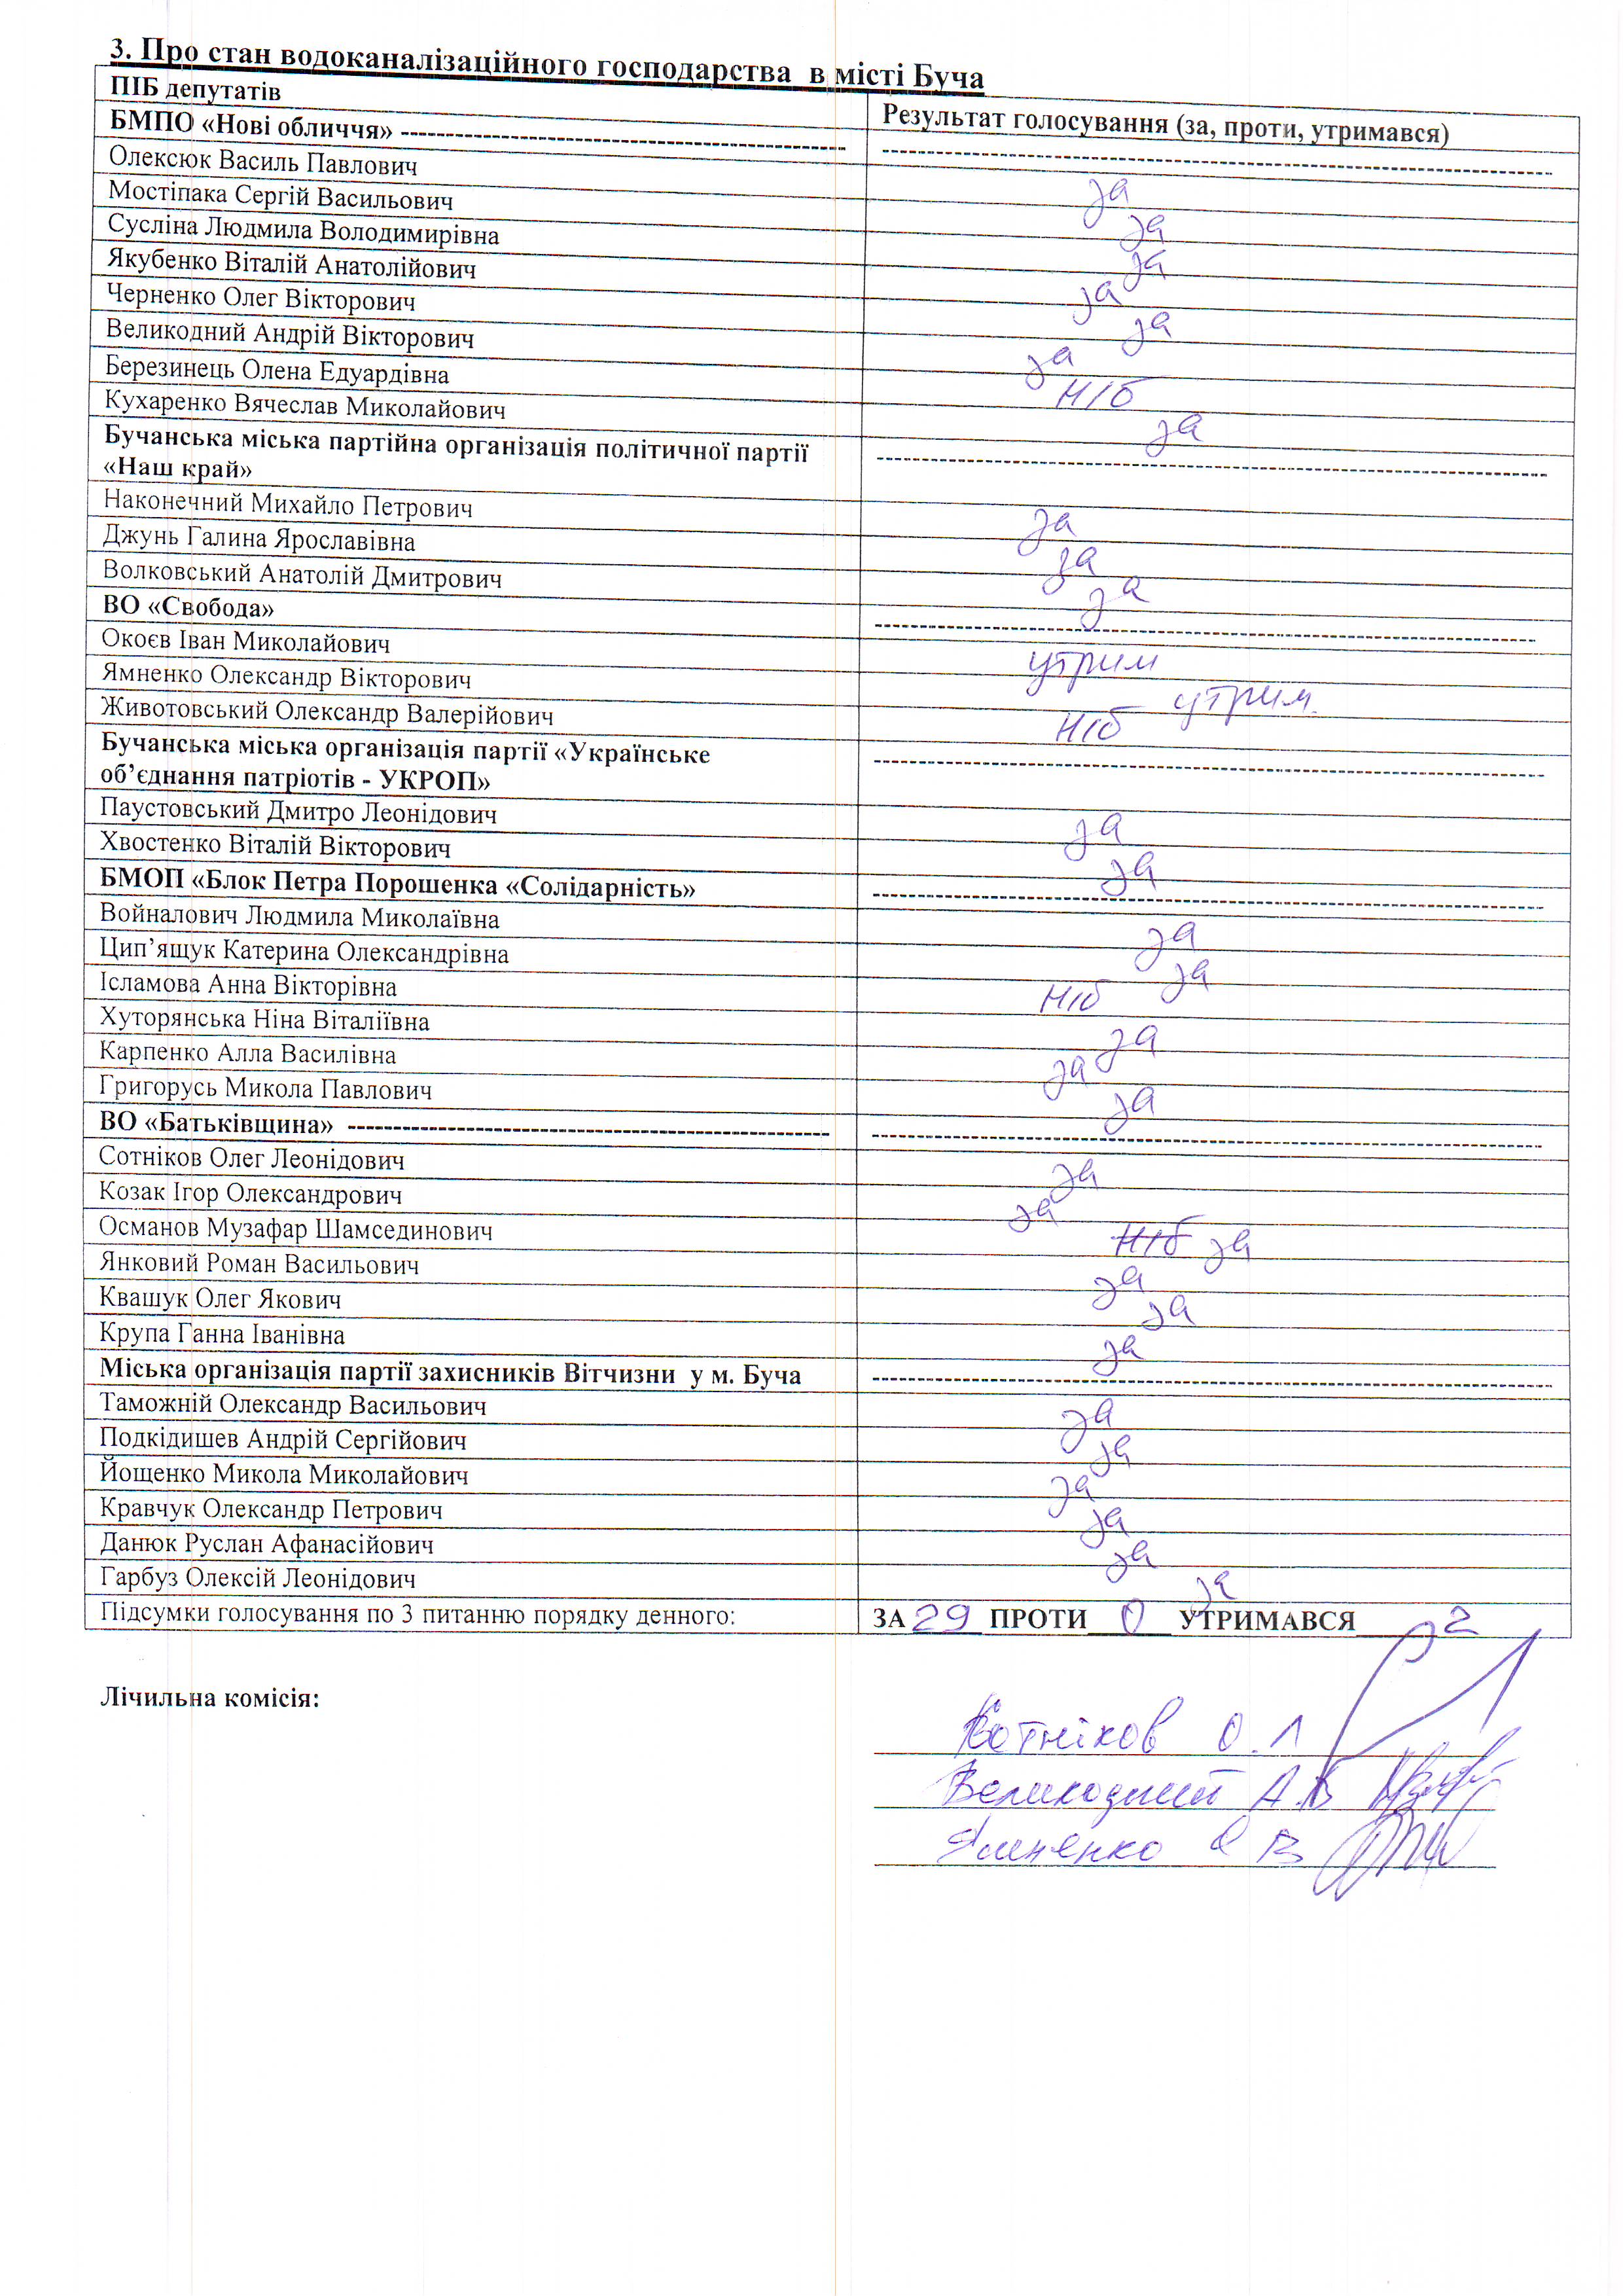 3. Про стан водоканалізаційного господарства в місті Буча
ПІБ депутатів Результат голосування (за, проти, утримався)
БМПО «Нові обличчя» ---
Олексюк Василь Павлович за
Мостіпака Сергій Васильович за
Сусліна Людмила Володимирівна за
Якубенко Віталій Анатолійович за
Черненко Олег Вікторович за
Великодний Андрій Вікторович за
Березинець Олена Едуардівна н/б
Кухаренко Вячеслав Миколайович за
Бучанська міська партійна організація політичної партії
«Наш край»
Наконечний Михайло Петрович за
Джунь Галина Ярославівна за
Волковський Анатолій Дмитрович за
ВО «Свобода»
Окоєв Іван Миколайович утрим
Ямненко Олександр Вікторович утрим.
Животовський Олександр Валерійович н/б
Бучанська міська організація партії «Українське
об’єднання патріотів - УКРОП»
Паустовський Дмитро Леонідович за
Хвостенко Віталій Вікторович за
БМОП «Блок Петра Порошенка «Солідарність»
Войналович Людмила Миколаївна за
Цип’ящук Катерина Олександрівна за
Ісламова Анна Вікторівна н/б
Хуторянська Ніна Віталіївна за
Карпенко Алла Василівна за
Григорусь Микола Павлович за
ВО «Батьківщина» ---
Сотніков Олег Леонідович за
Козак Ігор Олександрович за
Османов Музафар Шамсединович н/б за
Янковий Роман Васильович за
Квашук Олег Якович за
Крупа Ганна Іванівна за
Міська організація партії захисників Вітчизни у м. Буча
Таможній Олександр Васильович за
Подкідишев Андрій Сергійович за
Йощенко Микола Миколайович за
Кравчук Олександр Петрович за
Данюк Руслан Афанасійович за
Гарбуз Олексій Леонідович за
Підсумки голосування по 3 питанню порядку денного: ЗА 29 ПРОТИ 0 УТРИМАВСЯ 2
Лічильна комісія:
Сотніков О.Л
Великодний А.В
Ямненко О В